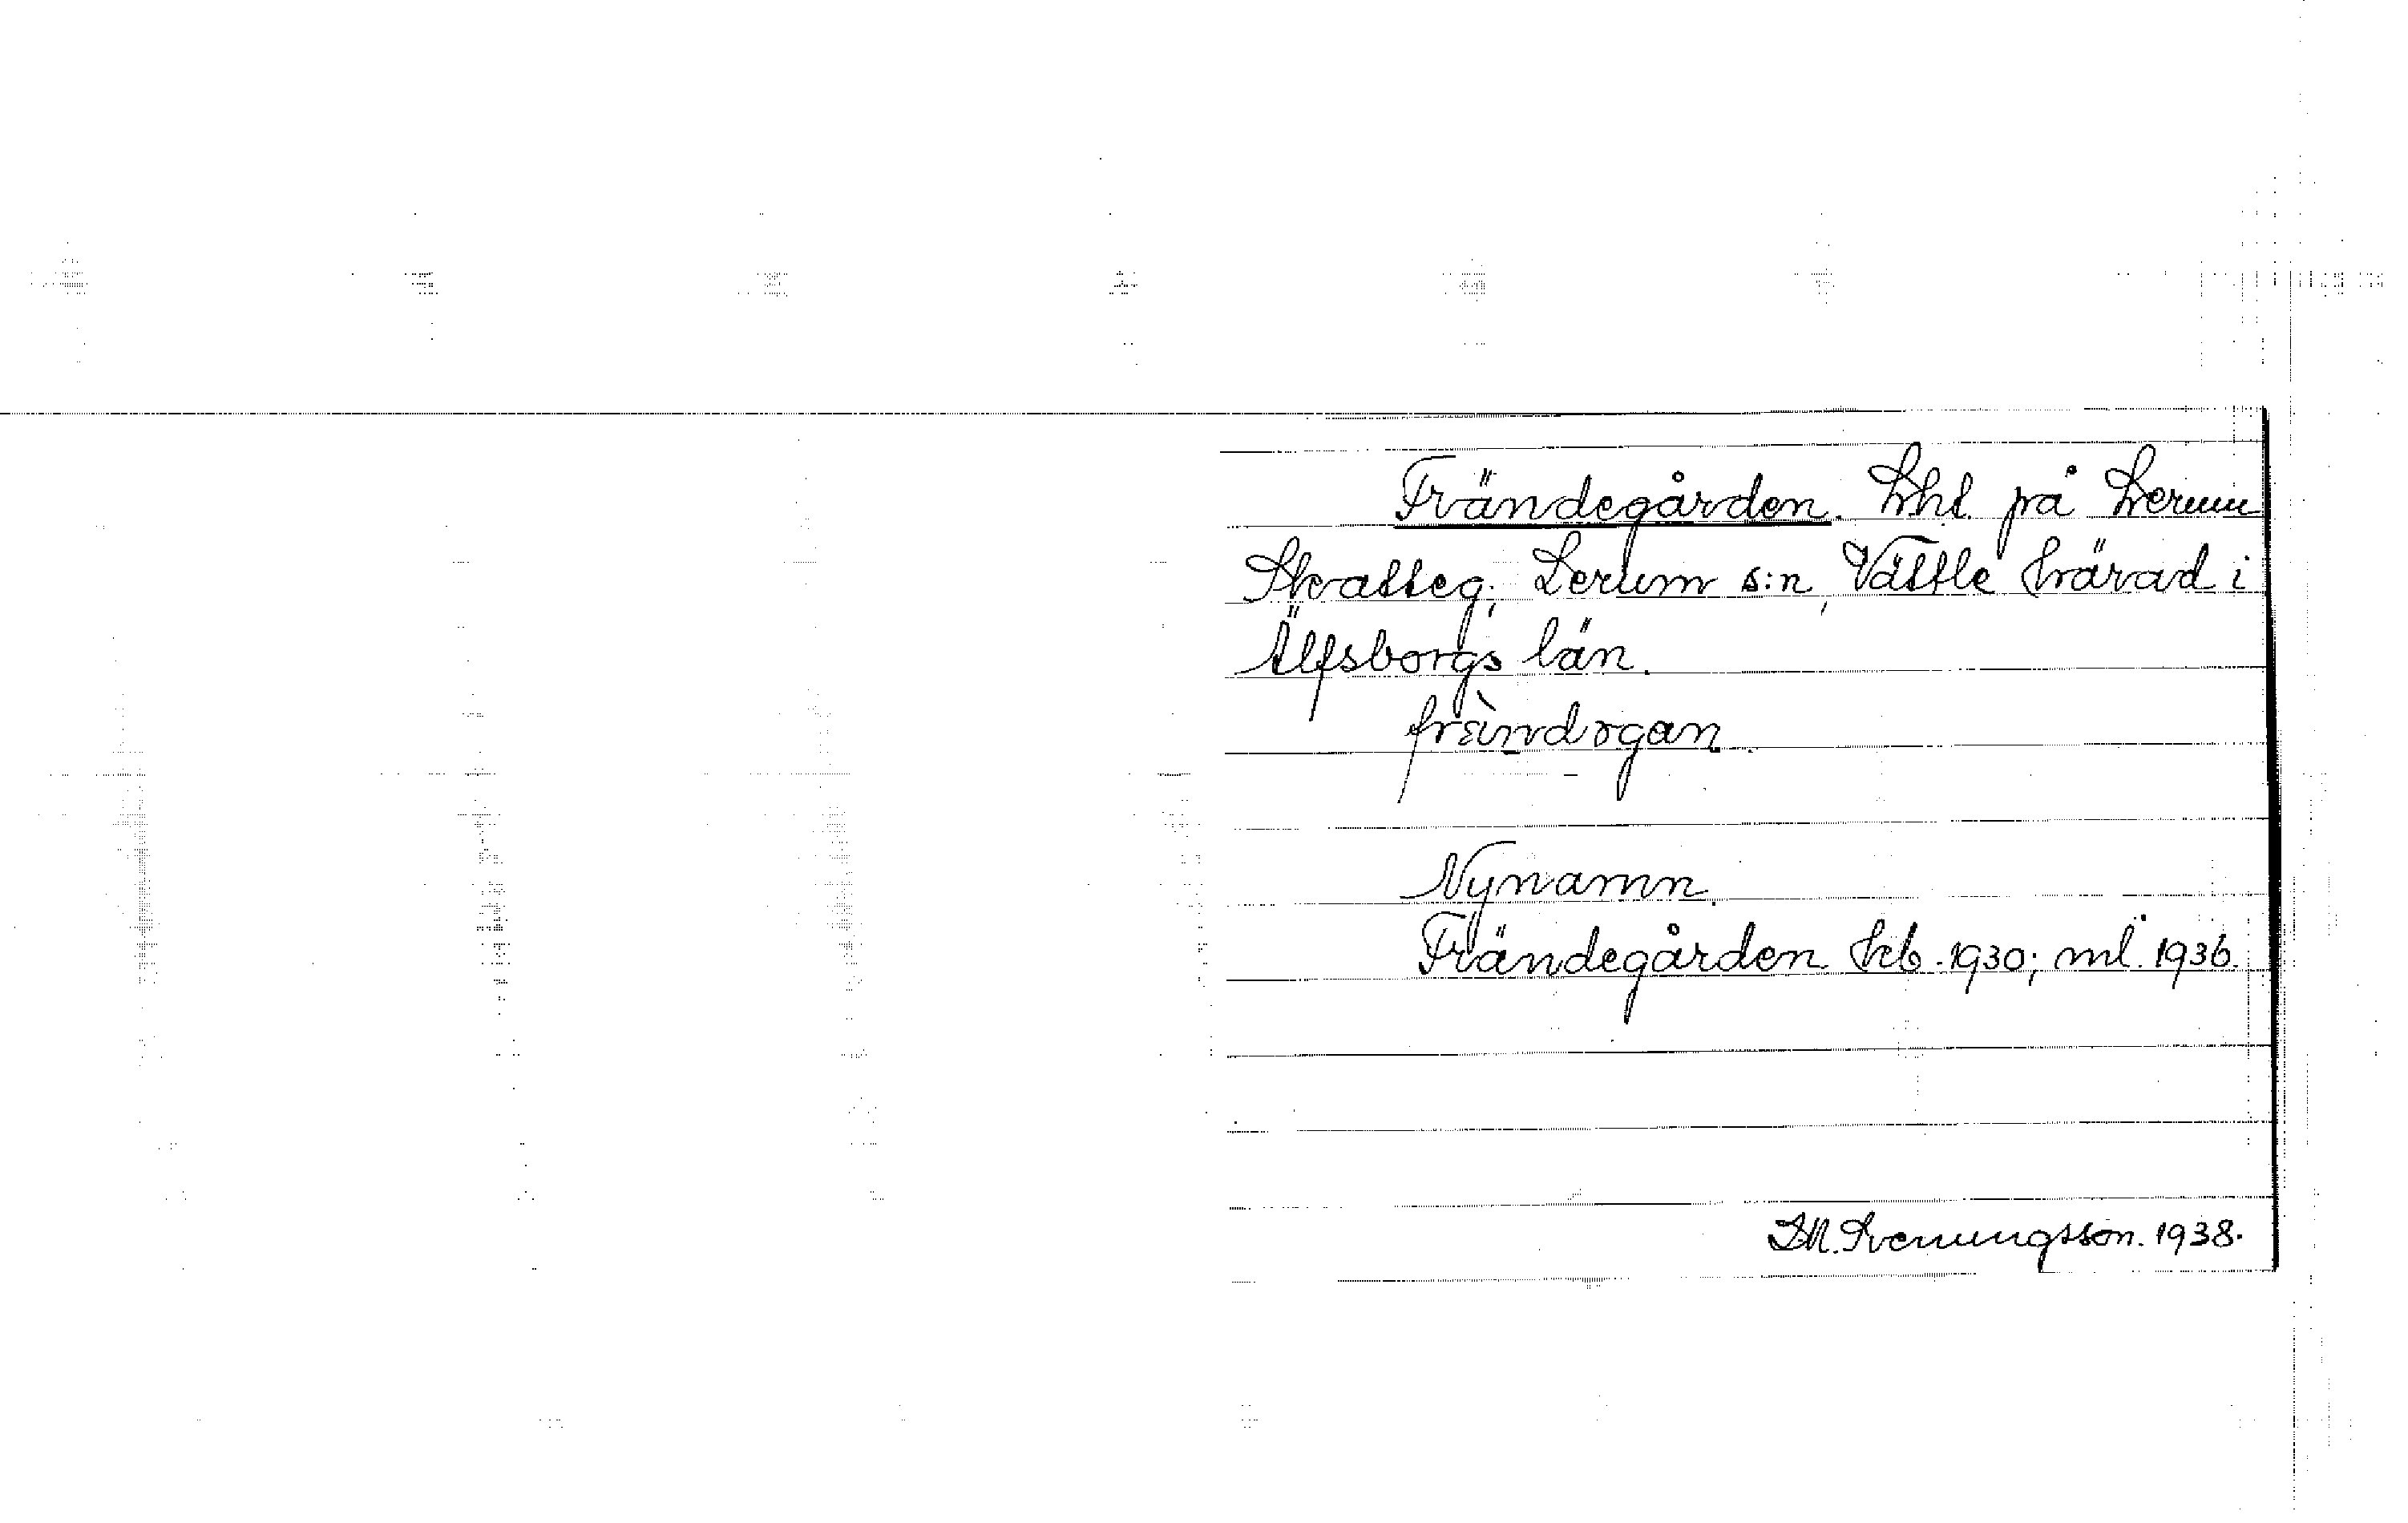 Frändegården. Lht. på Lerum
Skatteg., Lerum s:n, Vättle härad i
Älfsborgs län.
Nynamn.
Frändegården hb. 1930; ml. 1936.
I.M. Svenungsson. 1938.